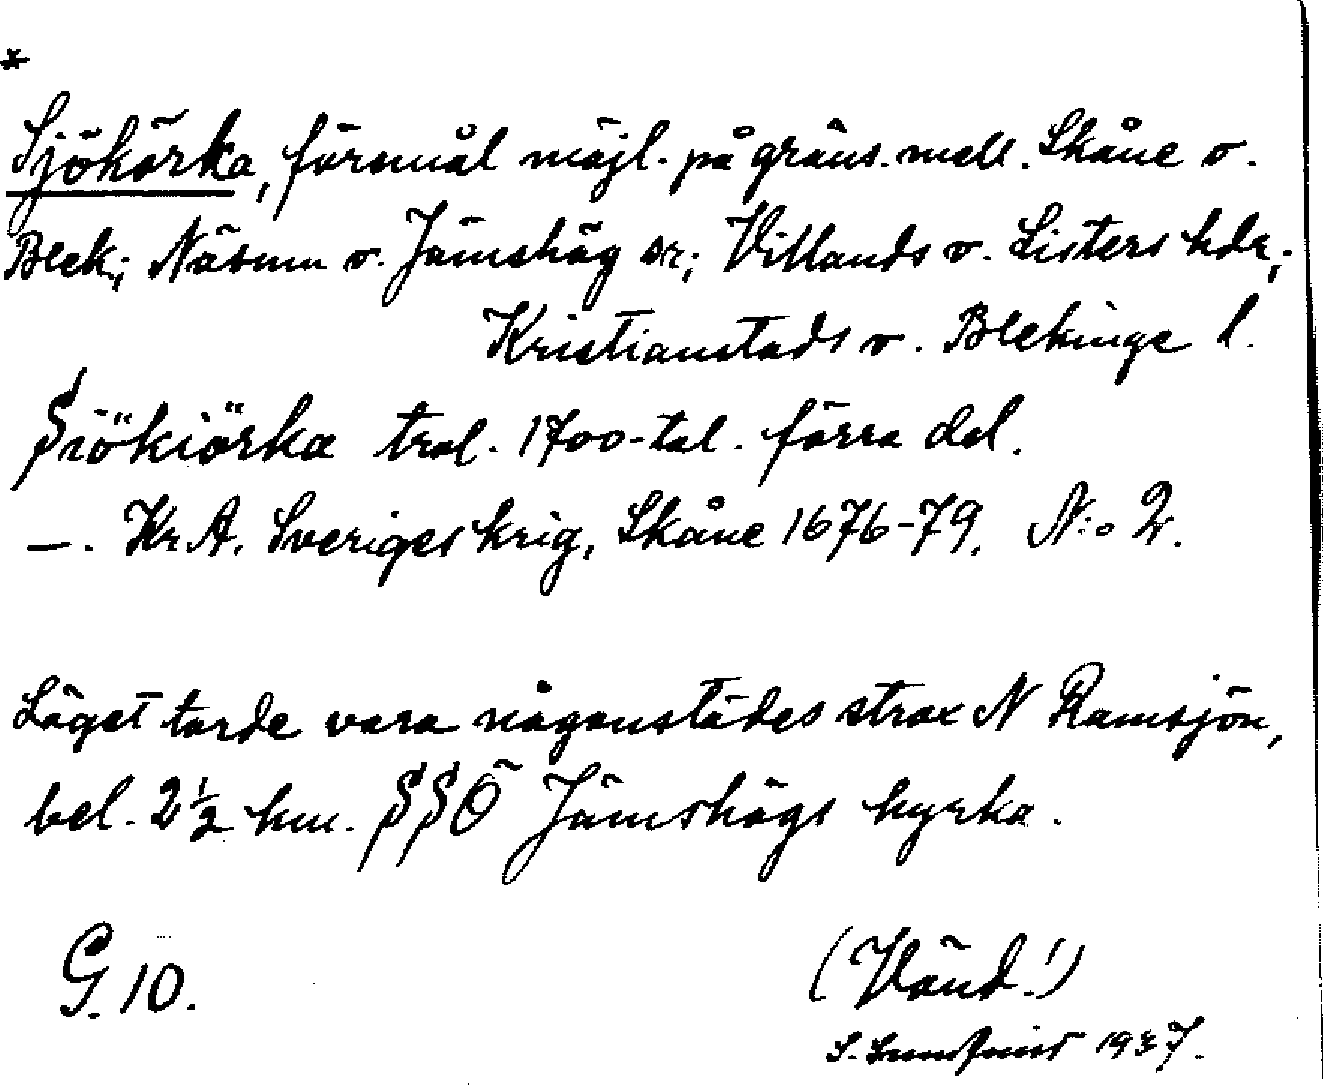 *
Sjökörka, föremål möjl. på gräns. mell. Skåne o.
Blek.; Näsum o. Jämshög sr; Villands o. Listers hdr;
Kristianstads o. Blekinge l.
Siökiörka trol. 1700-tal. förra del.
—. Kr.A. Sveriges krig, Skåne 1676-79. N:o 2.
Läget torde vara någonstädes strax N Ramsjön,
bel. 2½ km. SSÖ Jämshögs kyrka.
G. 10.
(Vänd!)
S. Lundquist 1937.